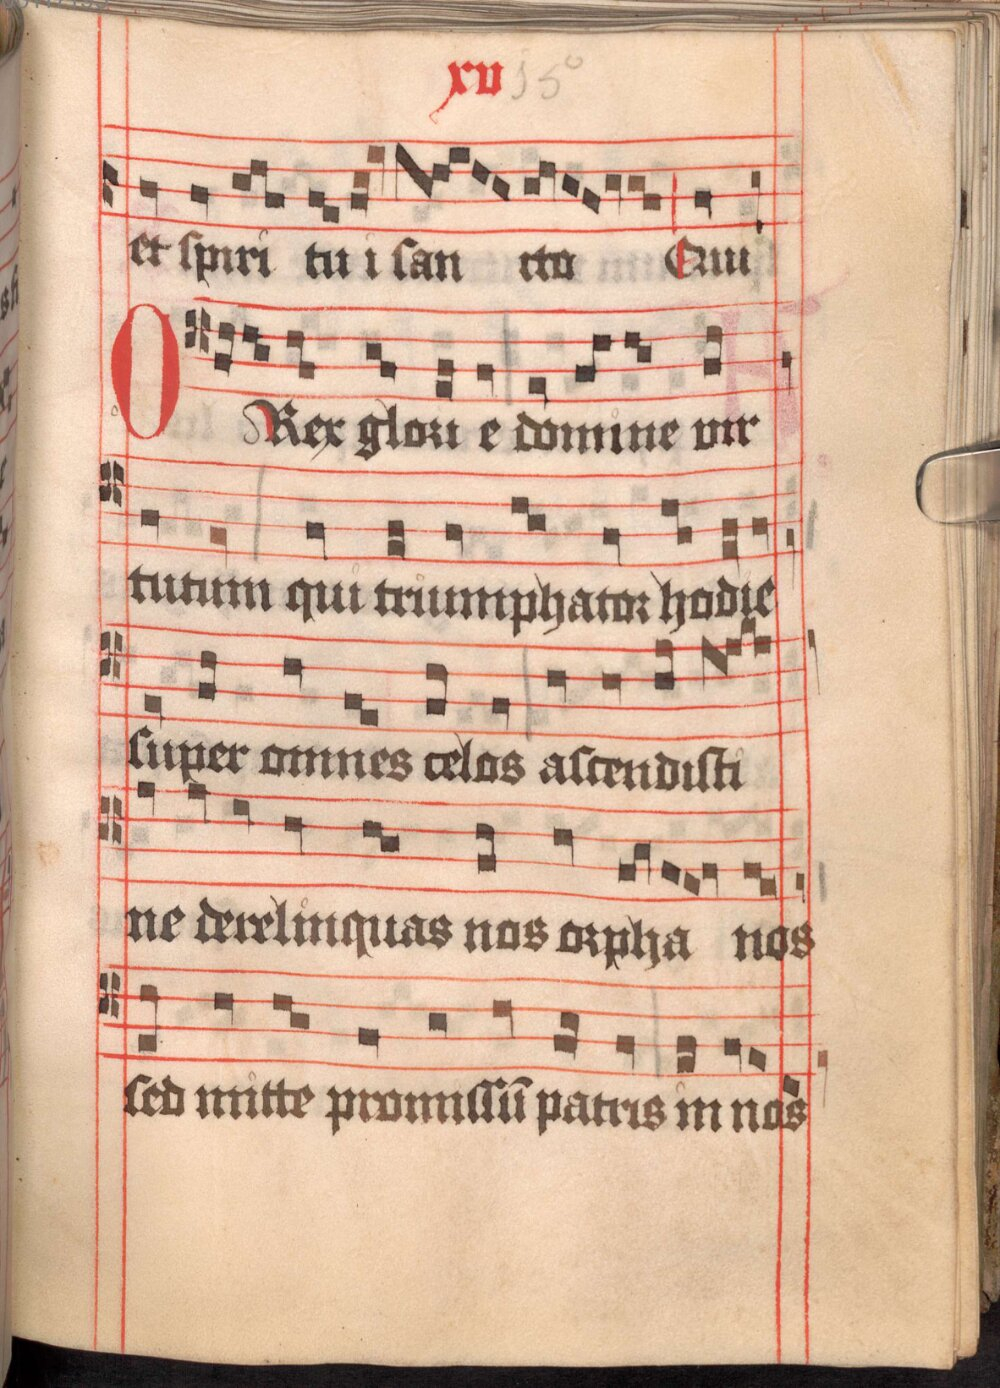 xv 15°
et spiri tu i san cto Qui
O Rex glori e domine vir
tutum qui triumphator hodie
super omnes celos ascendisti
ne derelinquas nos orpha nos
sed mitte promissū patris in nos